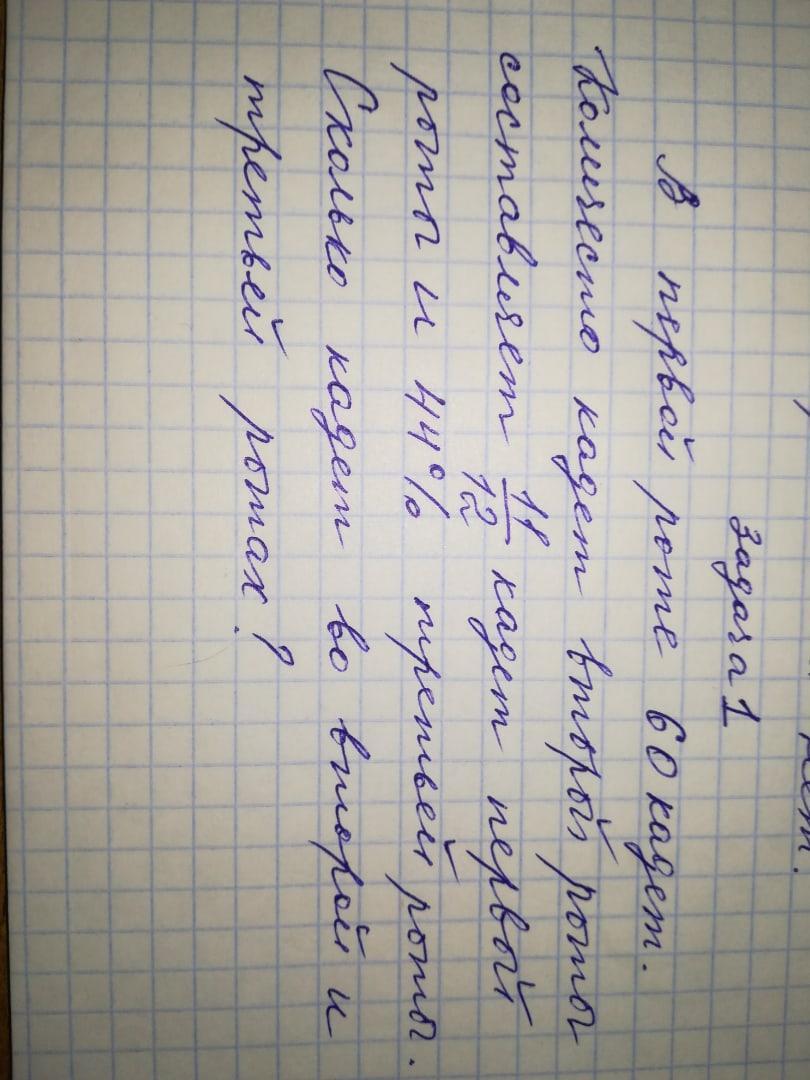 Задача 1
В первой роте 60 кадет.
Количесто кадет второй роты
составляет 11/12 кадет первой
роты и 44% третьей роты.
Сколько кадет во второй и
третьей ротах?